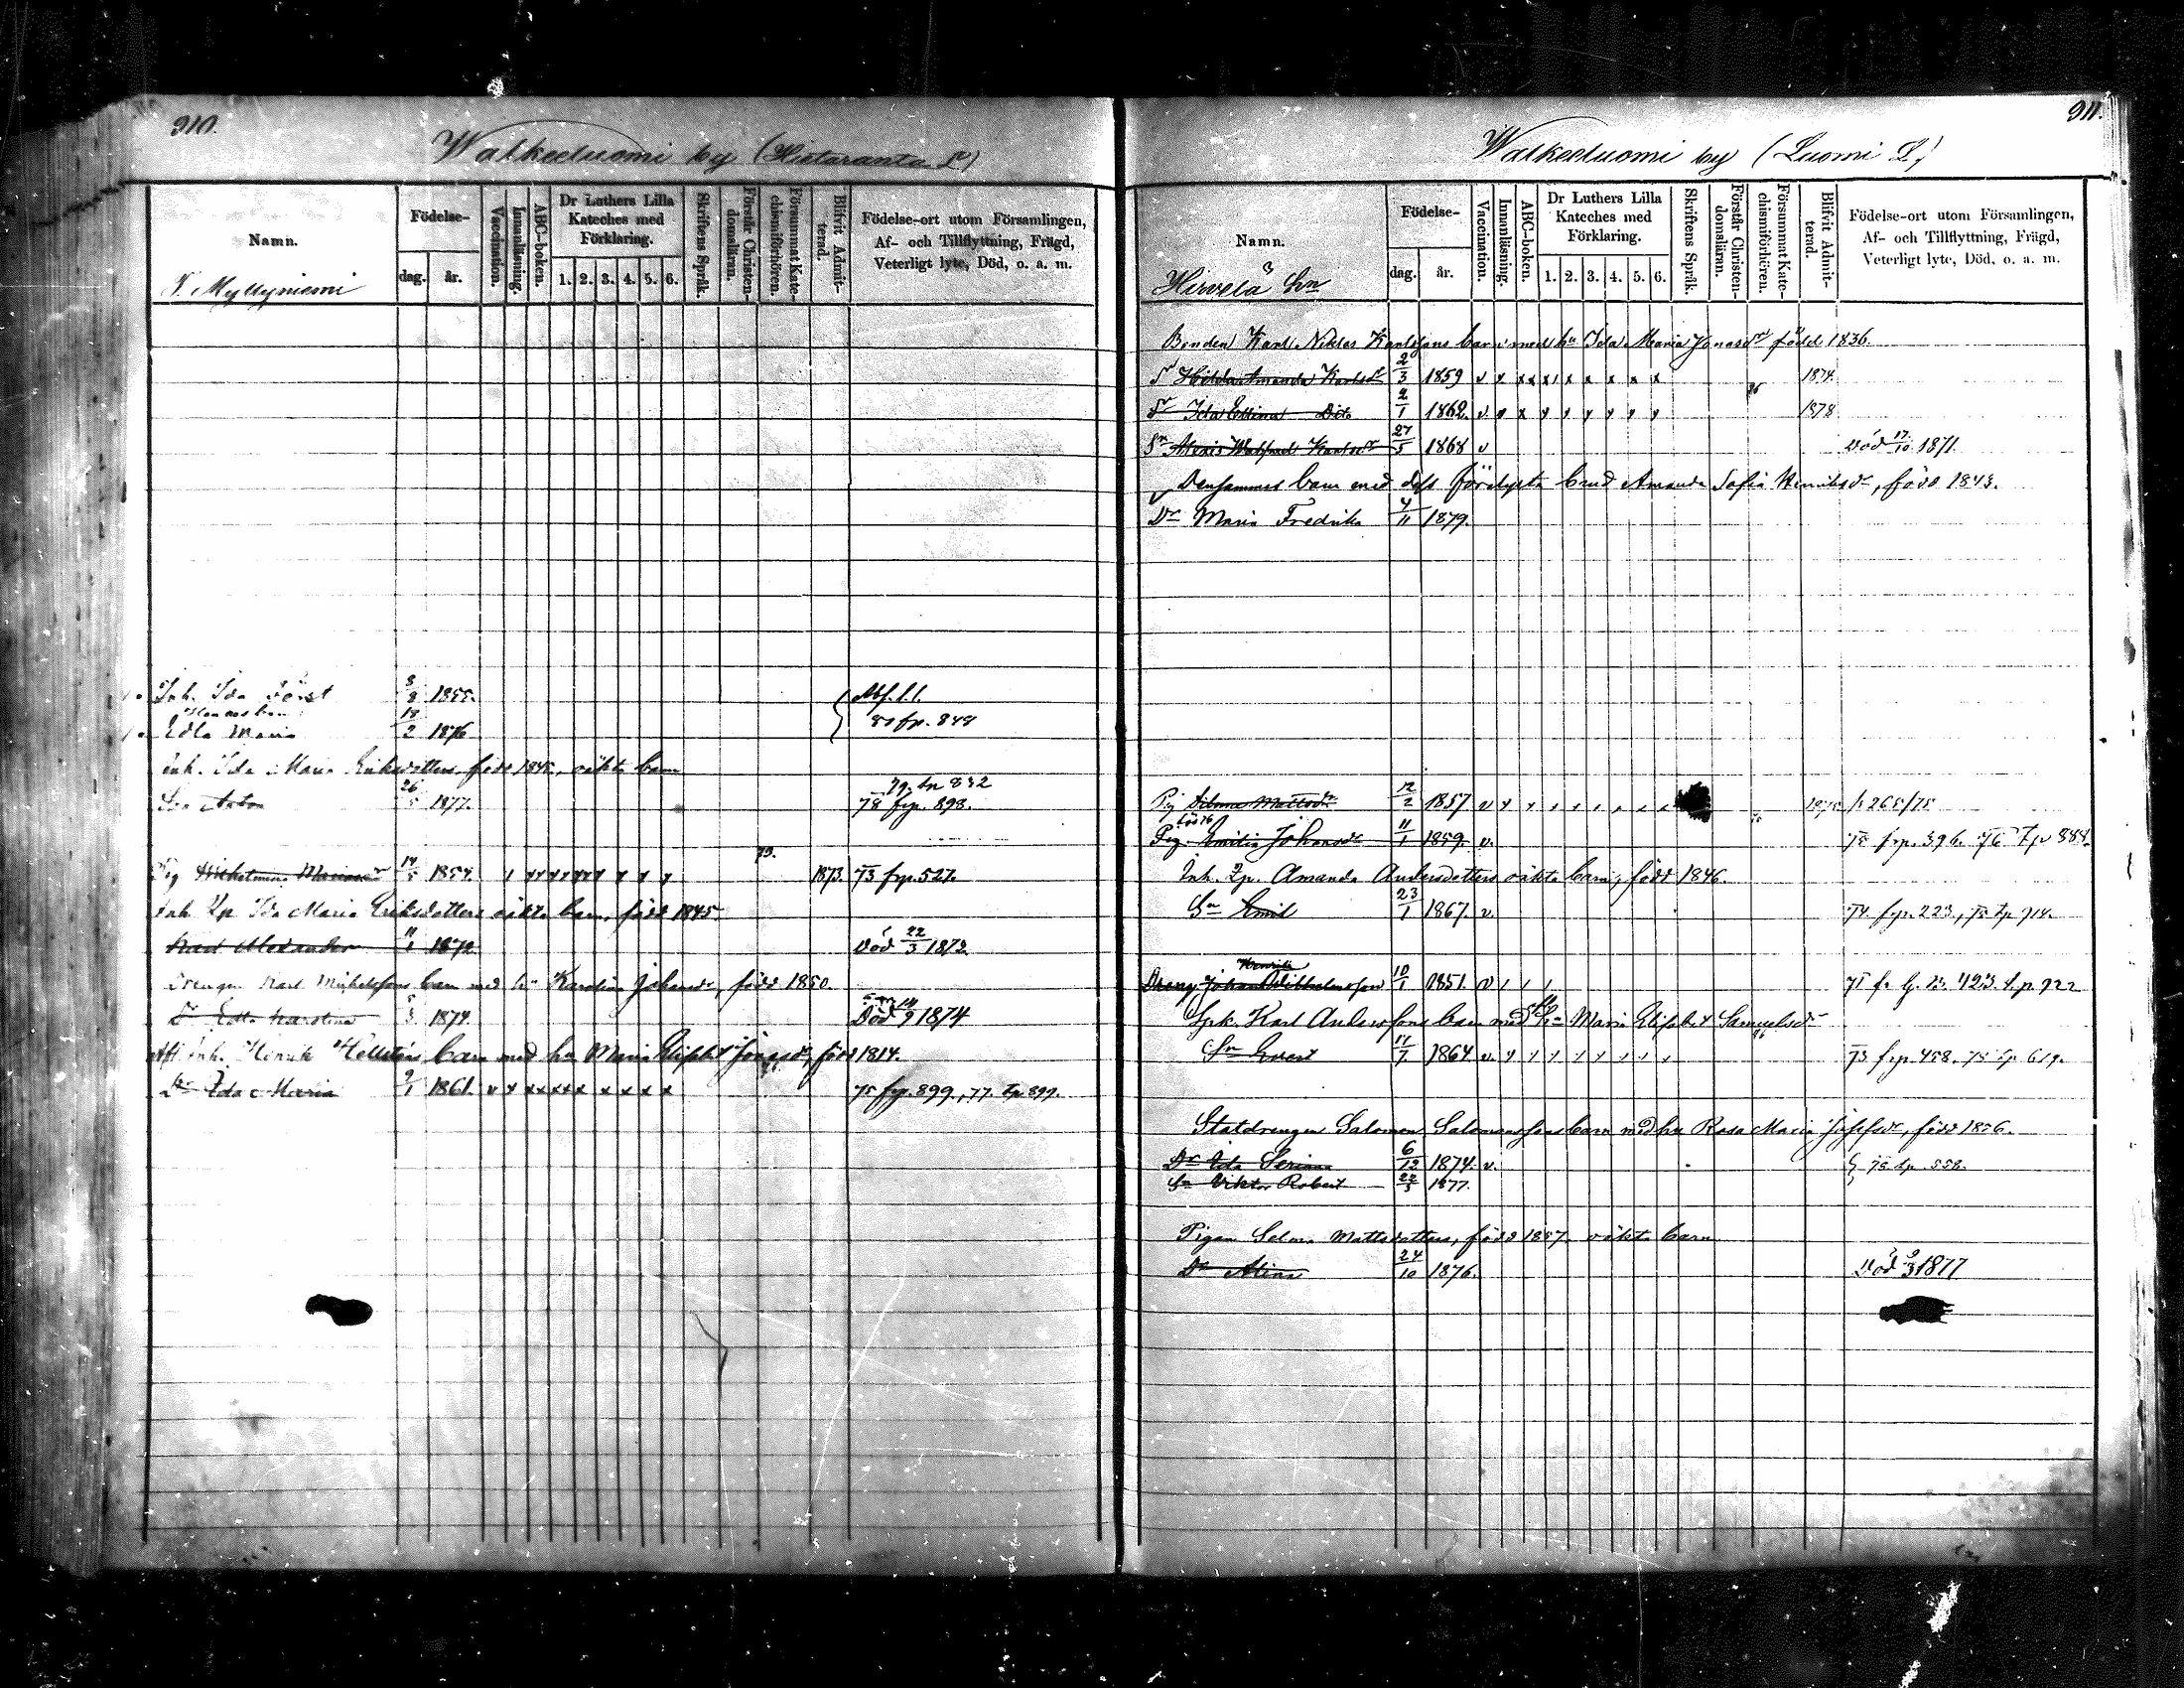 910.
Walkeeluomi by (Hietaranta L)
Namn.
Födelse-
dag. år.
Vaccination.
Innanläsning.
ABC-boken.
Dr Luthers Lilla Kateches med Förklaring.
1. 2. 3. 4. 5. 6.
Skriftens Språk.
Förstår Christendomsläran.
Försummat Katechismiförhören.
Blifvit Admitterad.
Födelse-ort utom Församlingen, Af- och Tillflyttning, Frägd, Veterligt lyte, Död, o. a. m.
Myllyniemi
Inh. Ida 8/8 1855.
Edla Maria 2 1876
Inh. Ida Maria Eriksdotters född 1845, oäkta barn
79. tp 832
Anton 26/5 1877. 78 frp. 898.
Pig Wilhelmina 14/5 1854. 73. 1873. 73 frp. 527.
Inh. Ida Maria Eriksdotters oäkta barn, född 1845.
Karl Alexander 11/1 1872 Död 22/3 1872
Drengen Karl Michelssons barn med hu Karolina Johansdr, född 1850.
Dr Edla Karolina 1874. Död 14/9 1874
Inh. Henrik Hellsténs barn med hu Maria Elisabet Jonasdr, född 1814.
Dr Ida Maria 9/1 1861. v x x x x x x x x x x 75 frp. 899., 77. tp 899.
911.
Walkeeluomi by (Luomi L)
Namn.
Födelse-
dag. år.
Vaccination.
Innanläsning.
ABC-boken.
Dr Luthers Lilla Kateches med Förklaring.
1. 2. 3. 4. 5. 6.
Skriftens Språk.
Förstår Christendomsläran.
Försummat Katechismiförhören.
Blifvit Admitterad.
Födelse-ort utom Församlingen, Af- och Tillflyttning, Frägd, Veterligt lyte, Död, o. a. m.
Hirvelä hn
Bonden Karl Niklas Karlssons barn med hu Ida Maria Jonasdr född 1836.
Dr Hilda Amanda Karlsdr 2/3 1859 v x x x x x x x x x 1874.
Dr Ida Ellina Dito 2/1 1862. v x x x x x x x x 1878
Sn Alexis Walfred Karlsson 27/5 1868 v Död 17/10 1871.
Densammes barn med dess förelysta brud Amanda Sofia Henriksdr, född 1843.
Dr Maria Fredrika 4/11 1879.
Pig Mattsdr 12/2 1857 v x x x x x x x x 265/75
Pig. Emilia Johansdr 11/1 1859. v. 75 frp. 396. 76 tp 888.
Inh. Amanda Andersdotters oäkta barn, född 1846.
Sn Emil 23/1 1867. v. 74 frp. 223., 75 tp 914.
Henrik
Dreng Johan Wilhelmsson 10/1 1851. v 423. t.p. 922
Karl Anderssons barn med hu Maria Elisabet Samuelsdr
Sn Evert 17/7 1864. v. x x x x x x x x 73 frp. 458. 75 tp 619.
Statdrengen Salomon Salomonssons barn med hu Rosa Maria Josefsdr, född 1856.
Dr Ida Serina 6/12 1874. v. 78 tp. 558.
Sn Viktor Robert 22/3 1877.
Pigan Selma Mattsdotters, född 1857 oäkta barn
Dr Alina 24/10 1876. Död 9/3 1877